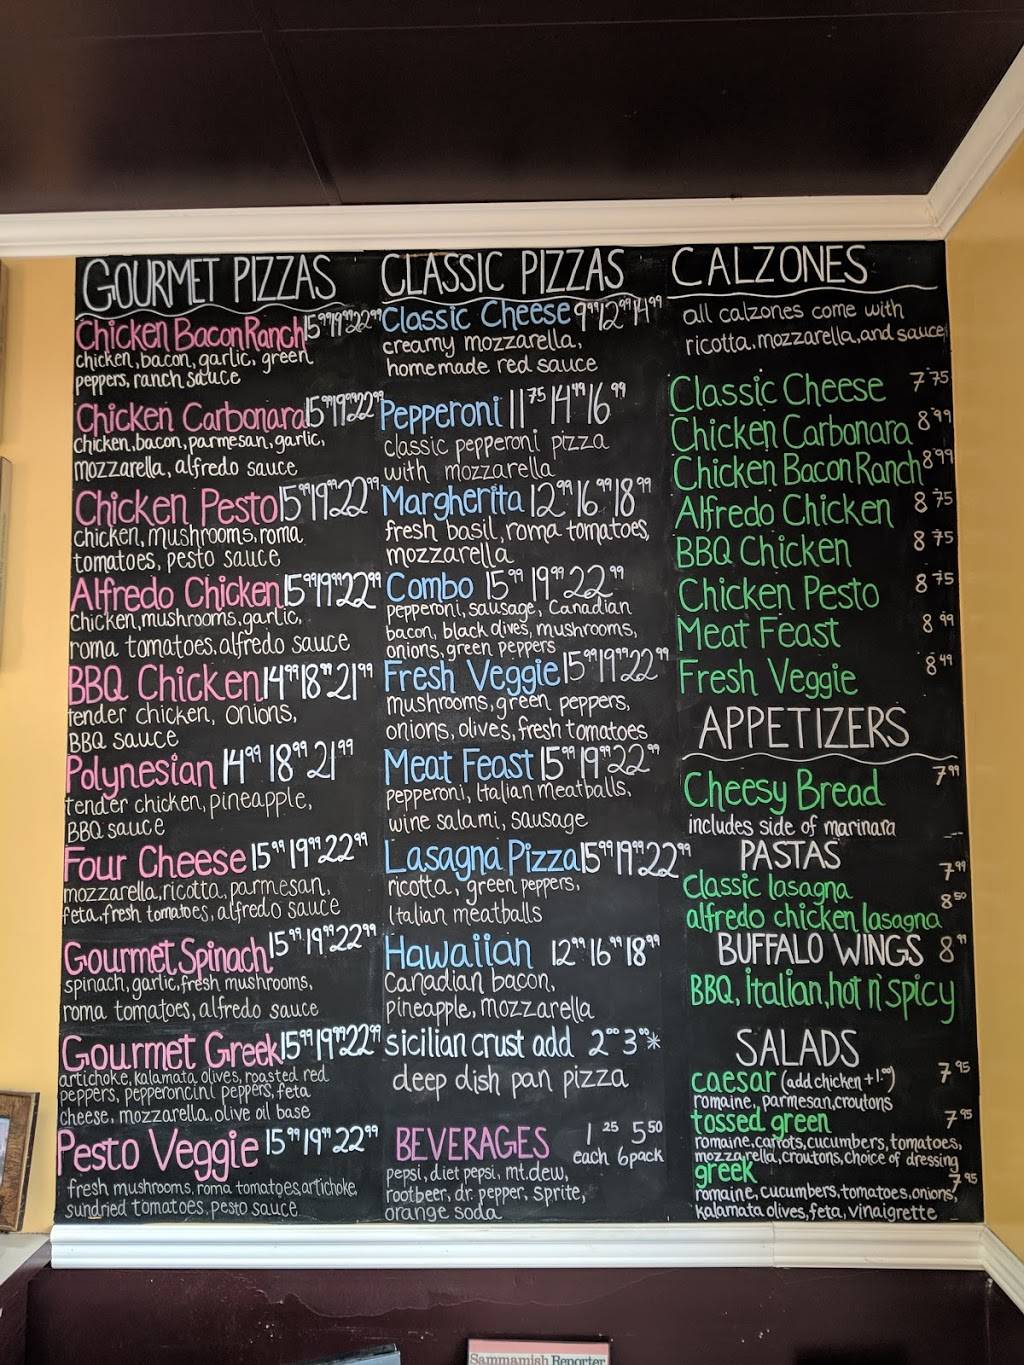 GOURMET PIZZAS
Chicken Bacon Ranch 15⁹⁹ 19⁹⁹ 22⁹⁹
chicken, bacon, garlic, green
peppers, ranch sauce
Chicken Carbonara 15⁹⁹ 19⁹⁹ 22⁹⁹
chicken, bacon, parmesan, garlic,
mozzarella, alfredo sauce
Chicken Pesto 15⁹⁹ 19⁹⁹ 22⁹⁹
chicken, mushrooms, roma
tomatoes, pesto sauce
Alfredo Chicken 15⁹⁹ 19⁹⁹ 22⁹⁹
chicken, mushrooms, garlic,
roma tomatoes, alfredo sauce
BBQ Chicken 14⁹⁹ 18⁹⁹ 21⁹⁹
tender chicken, onions,
BBQ sauce
Polynesian 14⁹⁹ 18⁹⁹ 21⁹⁹
tender chicken, pineapple,
BBQ sauce
Four Cheese 15⁹⁹ 19⁹⁹ 22⁹⁹
mozzarella, ricotta, parmesan,
feta, fresh tomatoes, alfredo sauce
Gourmet Spinach 15⁹⁹ 19⁹⁹ 22⁹⁹
spinach, garlic, fresh mushrooms,
roma tomatoes, alfredo sauce
Gourmet Greek 15⁹⁹ 19⁹⁹ 22⁹⁹
artichoke, kalamata olives, roasted red
peppers, pepperoncini peppers, feta
cheese, mozzarella, olive oil base
Pesto Veggie 15⁹⁹ 19⁹⁹ 22⁹⁹
fresh mushrooms, roma tomatoes, artichoke,
sundried tomatoes, pesto sauce
CLASSIC PIZZAS
Classic Cheese 9⁹⁹ 12⁹⁹ 14⁹⁹
creamy mozzarella,
homemade red sauce
Pepperoni 11⁷⁵ 14⁴⁹ 16⁹⁹
classic pepperoni pizza
with mozzarella
Margherita 12⁹⁹ 16⁹⁹ 18⁹⁹
fresh basil, roma tomatoes,
mozzarella
Combo 15⁹⁹ 19⁹⁹ 22⁹⁹
pepperoni, sausage, Canadian
bacon, black olives, mushrooms,
onions, green peppers
Fresh Veggie 15⁹⁹ 19⁹⁹ 22⁹⁹
mushrooms, green peppers,
onions, olives, fresh tomatoes
Meat Feast 15⁹⁹ 19⁹⁹ 22⁹⁹
pepperoni, Italian meatballs,
wine salami, sausage
Lasagna Pizza 15⁹⁹ 19⁹⁹ 22⁹⁹
ricotta, green peppers,
Italian meatballs
Hawaiian 12⁹⁹ 16⁹⁹ 18⁹⁹
Canadian bacon,
pineapple, mozzarella
sicilian crust add 2⁰⁰ 3⁰⁰*
deep dish pan pizza
BEVERAGES 1²⁵ 5⁵⁰
each 6pack
pepsi, diet pepsi, mt.dew,
rootbeer, dr. pepper, sprite,
orange soda
CALZONES
all calzones come with
ricotta, mozzarella, and sauce
Classic Cheese 7⁷⁵
Chicken Carbonara 8⁹⁹
Chicken Bacon Ranch 8⁹⁹
Alfredo Chicken 8⁷⁵
BBQ Chicken 8⁷⁵
Chicken Pesto 8⁷⁵
Meat Feast 8⁹⁹
Fresh Veggie 8⁴⁹
APPETIZERS
Cheesy Bread 7⁹⁹
includes side of marinara
PASTAS
classic lasagna 7⁹⁹
alfredo chicken lasagna 8⁵⁰
BUFFALO WINGS 8⁹⁹
BBQ, italian, hot n' spicy
SALADS
caesar (add chicken +1.⁰⁰) 7⁹⁵
romaine, parmesan, croutons
tossed green 7⁹⁵
romaine, carrots, cucumbers, tomatoes,
mozzarella, croutons, choice of dressing
greek 7⁹⁵
romaine, cucumbers, tomatoes, onions,
kalamata olives, feta, vinaigrette
Sammamish Reporter